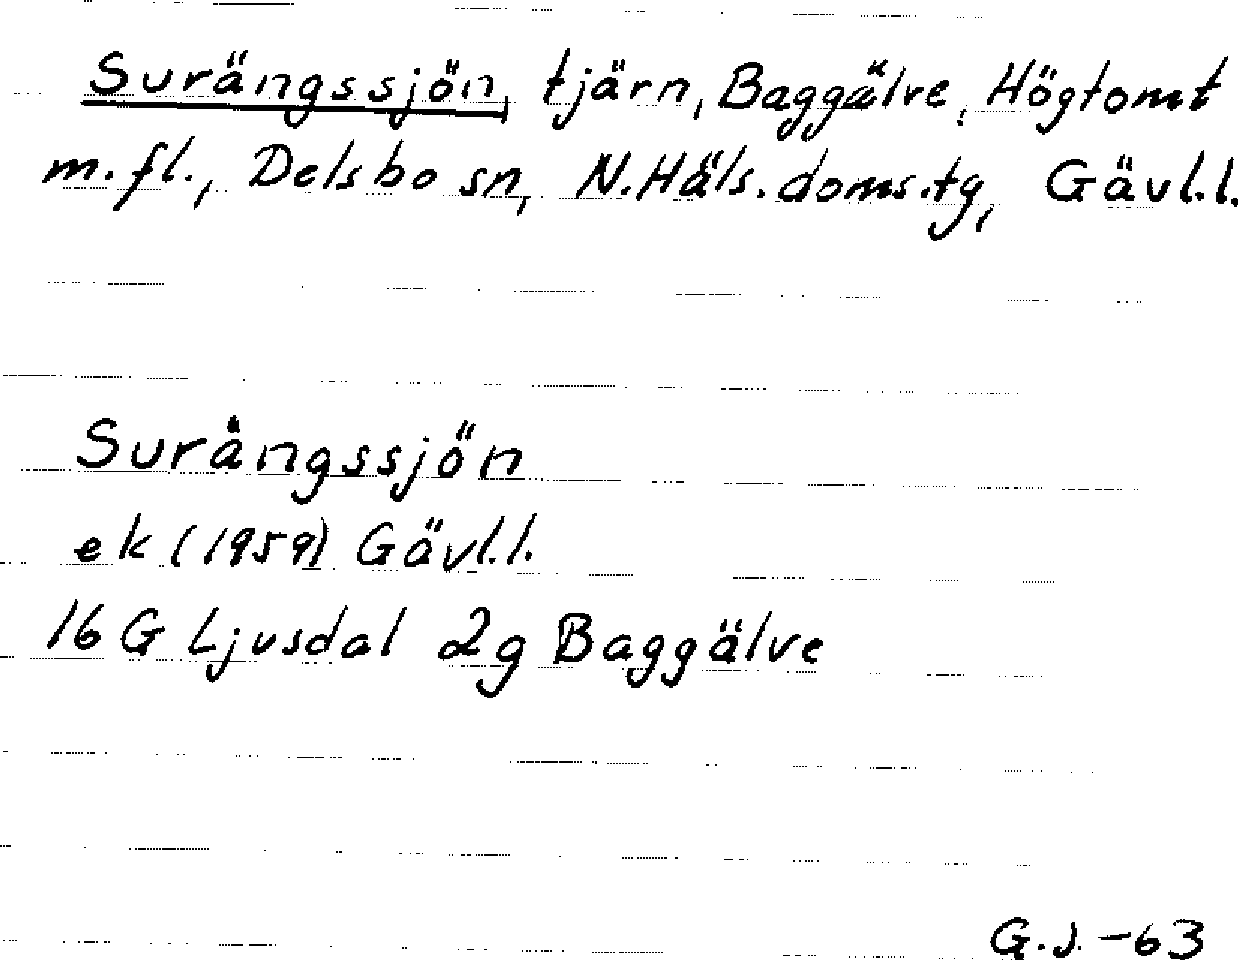 Surängssjön, tjärn, Baggälve, Högtomt
m.fl., Delsbo sn, N.Häls.doms.tg, Gävl.l.
Surångssjön
ek (1959) Gävl.l.
16 G Ljusdal 2g Baggälve
G.J. -63